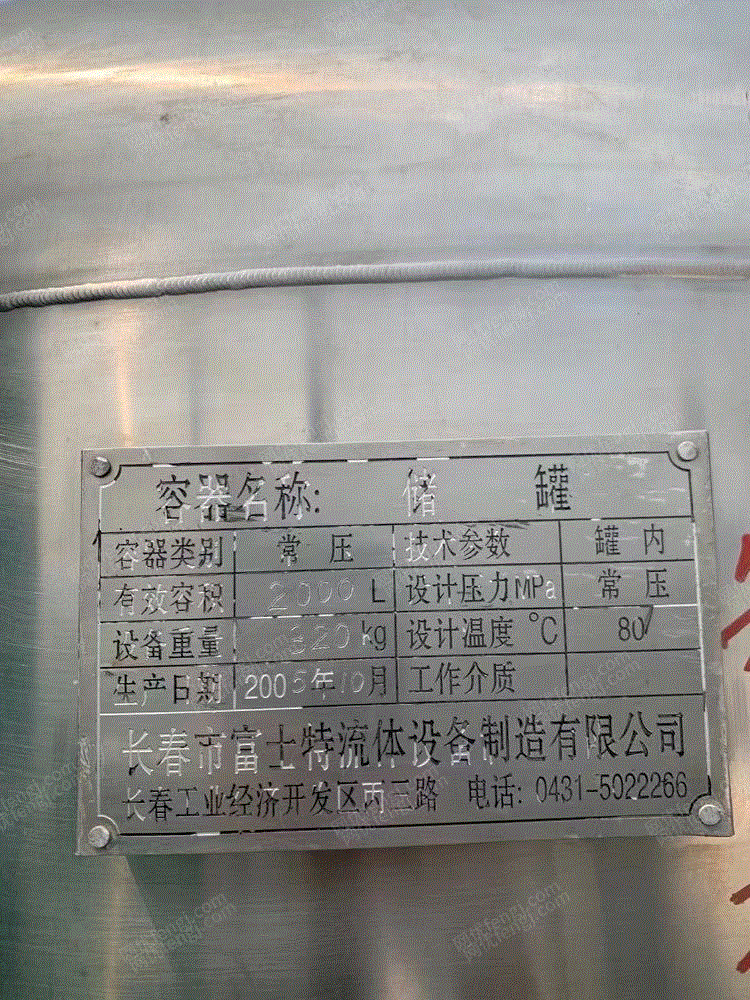 容器名称: 储罐
容器类别 常压 技术参数 罐内
有效容积 2000 L 设计压力MPa 常压
设备重量 320kg 设计温度℃ 80
生产日期 2005年10月 工作介质
长春市富士特流体设备制造有限公司
长春工业经济开发区丙三路 电话: 0431-5022266